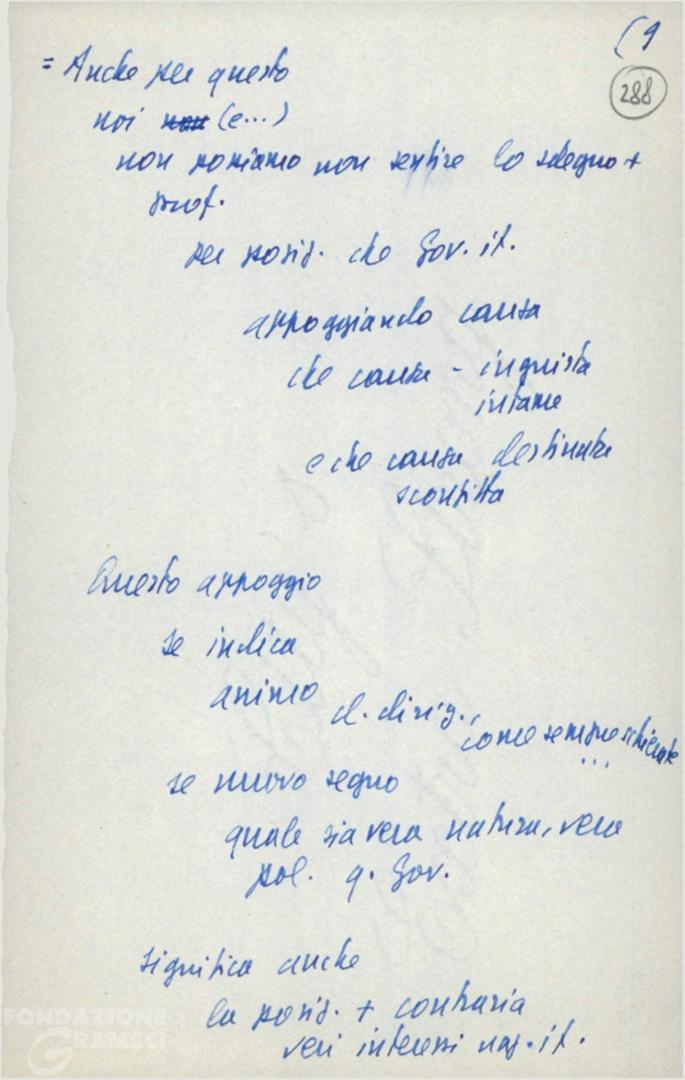 (9
288
= Anche per questo
noi non (e...)
non possiamo non sentire lo sdegno +
prof.
per posiz. che Gov. it.
appoggiando causa
che causa - ingiusta
infame
e che causa destinata
sconfitta
Questo appoggio
se indica
animo d. dirig., come sempre schierate
...
se nuovo segno
quale sia vera natura, vera
pol. q. Gov.
significa anche
la posiz. + contraria
veri interessi naz. it.
FONDAZIONE
GRAMSCI